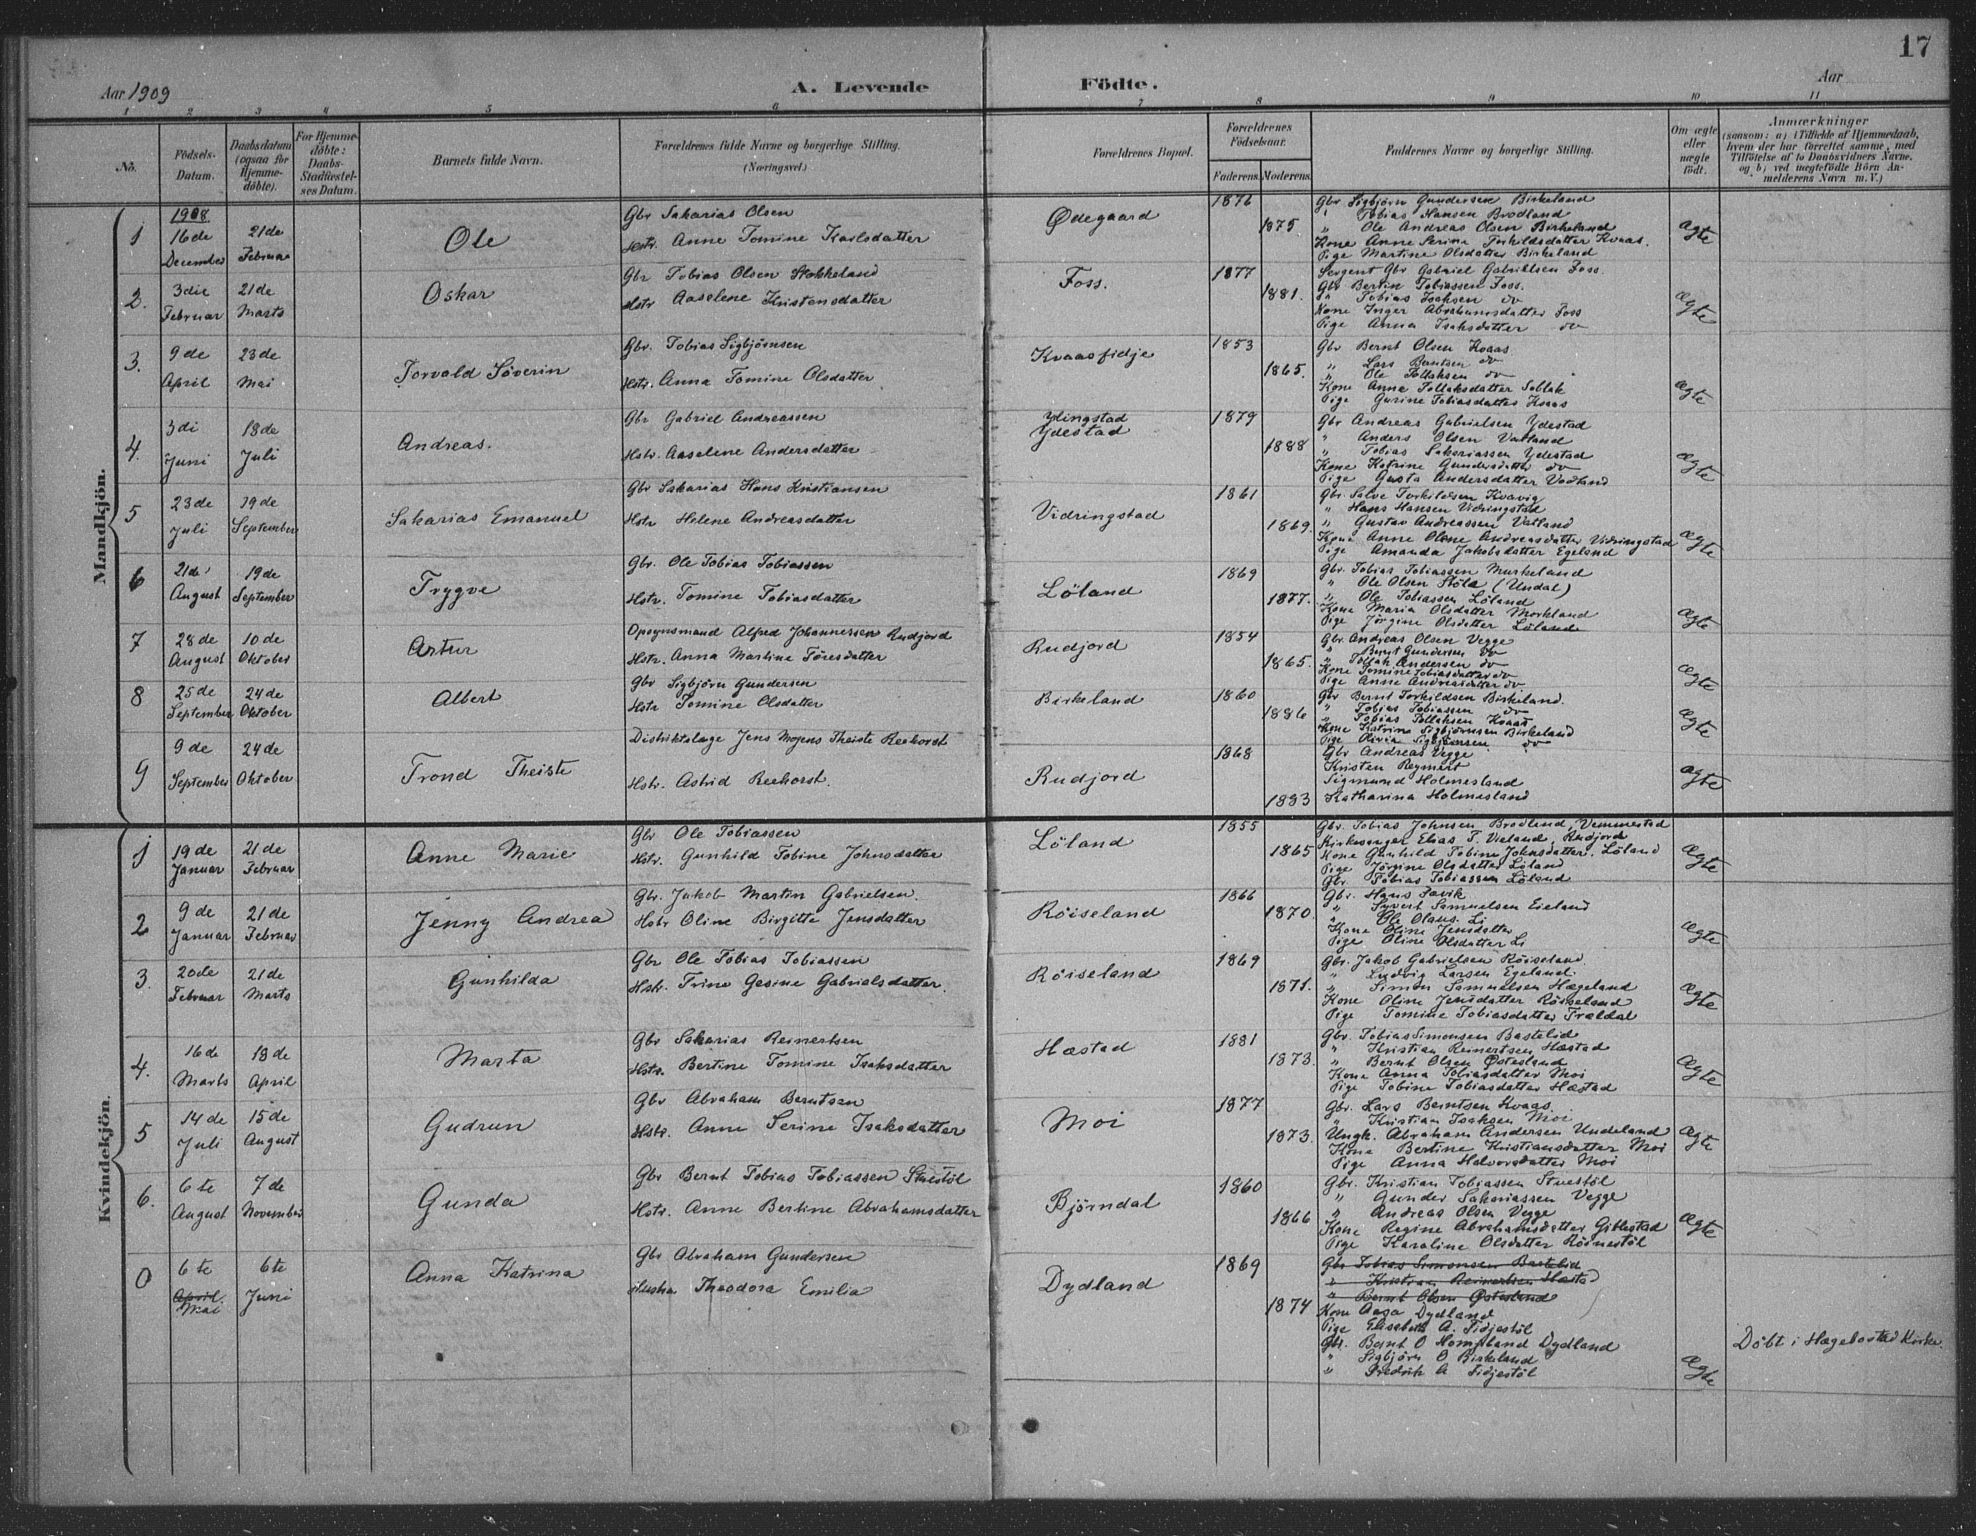 17
Aar 1909
A. Levende Födte.
Aar
1 2 3 4 5 6 7 8 9 10 11
No.
Födsels-Datum.
Daabsdatum (ogsaa for Hjemme-döbte).
For Hjemme-döbte: Daabs-Stadfæstel-ses Datum.
Barnets fulde Navn.
Forældrenes fulde Navne og borgerlige Stilling.
(Næringsvei.)
Forældrenes Bopæl.
Forældrenes Födselsaar.
Faderens. Moderens.
Faddernes Navne og borgerlige Stilling.
Om ægte eller uægte födt.
Anmærkninger
(saasom: a) i Tilfælde af Hjemmedaab,
hvem der har forrettet samme, med
Tilföielse af to Daabsvidners Navne.
og b) ved uægtefödte Börn An-
melderens Navn m. V.)
Mandkjön.
1
1908
16de December
21de Februar
Ole
Gbr Sakarias Olsen
Hstr. Anne Tomine Karlsdatter
Ødegaard
1876
1875
Gbr Sigbjörn Gundersen Birkeland
" Tobias Hansen Brodland
" Ole Andreas Olsen Birkeland
Kone Anne Serina Torkildsdatter Kvaas.
Pige Martine Olsdatter Birkeland
Ægte
2.
3die Februar
21de Marts
Oskar
Gbr Tobias Olsen Stokkeland
Hstr Aaselene Kristensdatter
Foss.
1877
1881.
Sergent Gbr Gabriel Gabrielsen Foss.
Gbr Bertin Tobiassen Foss.
" Tobias Isaksen do
Kone Inger Abrahamsdatter Foss
Pige Anna Isaksdatter do
Ægte
3.
9de April
23de Mai
Torvald Söverin
Gbr. Tobias Sigbjörnsen
Hstr. Anna Tomine Olsdatter
Kvaasfidje
1853
1865.
Gbr Bernt Olsen Kvaas
" Lars Berntsen do
" Ole Tollaksen do
Kone Anne Tollaksdatter
Pige Gurine Tobiasdatter Kvaas
Ægte
4.
3di Juni
18de Juli
Andreas.
Gbr Gabriel Andreassen
Hstr. Aaselene Andersdatter
Ydestad
1879
1888
Gbr Andreas Gabrielsen Ydestad
" Anders Olsen Vatland
" Tobias Sakariassen Ydestad
Kone Katrine Gundersdatter do
Pige Gusta Andersdatter Vatland
Ægte
5
23de Juli
19de September
Sakarias Emanuel
Gbr Sakarias Hans Kristiansen
Hstr Helene Andreasdatter
Vidringstad
1861
1869.
Gbr. Salve Torkildsen Kvavig
" Hans Hansen Vidringstad
" Gustav Andreassen Vatland
Kone Anne Oline Andreasdatter Vidringstad
Pige Amanda Jakobsdatter Egeland
Ægte
6
21de August
19de September
Trygve
Gbr. Ole Tobias Tobiassen
Hstr. Tomine Tobiasdatter
Löland
1869
1877.
Gbr. Tobias Tobiassen Murkeland
" Ole Olsen (Undal)
" Ole Tobiassen Löland
Kone Maria Olsdatter Morkland
Pige Jörgine Olsdatter Löland
Ægte
7
28de August
10de Oktober
Artur
Opsynsmand Alfred Johannessen Rudjord
Hstr. Anna Martine Töresdatter
Rudjord
1854
1865.
Gbr. Andreas Olsen Vegge
" Bernt Gundersen do
" Tollak Andersen do
Kone Tomine Tobiasdatter do
Pige Anne Andreasdatter do
Ægte
8
25de September
24de Oktober
Albert
Gbr Sigbjörn Gundersen
Hstr Tomine Olsdatter
Birkeland
1860
1886
Gbr Bernt Torkildsen Birkeland.
" Tobias Tobiassen do
" Tobias Tollaksen Kvaas
Kone Katrine Sigbjörnsen Birkeland
Pige Olivia Sigbjörnsen do
Ægte
9
9de September
24de Oktober
Trond Theiste
Distriktslæge Jens Mojens Theiste Reehorst
Hstr. Astrid Reehorst.
Rudjord
1868
1883
Gbr Andreas Vegge
Kristen Reymert
Sigmund Holmesland
Katharina Holmesland
Ægte
Kvindekjön.
1
19de Januar
21de Februar
Anne Marie
Gbr Ole Tobiassen
Hstr. Gunhild Tobine Johnsdatter
Löland
1855
1865
Gbr. Tobias Johnsen Brodland, Vemmestad
Kirkesanger Elias T. Vieland, Rudjord
Kone Gunhild Tobine Johnsdatter. Löland
Pige Jörgine Olsdatter Löland
Gbr. Tobias Tobiassen Löland
Ægte
2
9de Januar
21de Februar
Jenny Andrea
Gbr. Jakob Martin Gabrielsen.
Hstr Oline Birgitte Jensdatter
Röiseland
1866
1870.
Gbr. Hans
" Syvert Samuelsen Eieland
" Ole Olaus. Li
Kone Oline Jensdatter
Pige Oline Olsdatter Li
Ægte
3
20de Februar
21de Marts
Gunhilda
Gbr Ole Tobias Tobiassen
Hstr. Trine Gesine Gabrielsdatter
Röiseland
1869
1871.
Gbr. Jakob Gabrielsen Röiseland
" Ludvig Larsen Egeland.
" Simon Samuelsen Hægeland
Kone Oline Jensdatter Röiseland
Pige Tomine Tobiasdatter Trældal
Ægte
4.
16de Marts
18de April
Marta
Gbr Sakarias Reinertsen
Hstr. Bertine Tomine Isaksdatter
Hæstad
1881
1873.
Gbr. Tobias Simonsen Bastelid
" Kristian Reinertsen Hæstad
" Bernt Olsen Östesland
Kone Anna Tobiasdatter Moi
Pige Tobine Tobiasdatter Hæstad
Ægte
5
14de Juli
15de August
Gudrun
Gbr Abraham Berntsen
Hstr. Anne Serine Isaksdatter
Moi
1877
1873.
Gbr. Lars Berntsen Kvaas.
" Kristian Isaksen Moi
Ungk. Abraham Andersen Undeland
Kone Bertine Kristiansdatter Moi
Pige Anna Halvorsdatter Moi
Ægte
6.
6te August
7de November
Gunda
Gbr Bernt Tobias Tobiassen Stuestöl
Hstr. Anne Bertine Abrahamsdatter
Björndal
1860
1866
Gbr. Kristian Tobiassen Stuestöl
" Gunder Sakariassen Vegge
" Andreas Olsen Vegge
Kone Regine Abrahamsdatter Gitlestad
Pige Karoline Olsdatter Röinestöl
Ægte
0
6te April. Mai
6te Juni
Anna Katrina
Gbr Abraham Gundersen
Hustru Theodora Emilia
Dydland
1869
1874
Gbr Tobias Simonsen Bastelid
" Kristian Reinertsen Hæstad
" Bernt Olsen Östesland
Kone Aasa Dydland
Pige Elisabeth A. Fidjestöl
Gbr. Bernt O Homsland Dydland
" Sigbjörn O Birkeland
" Fredrik A Fidjestöl
Ægte
Döbt i Hægebostad Kirke.